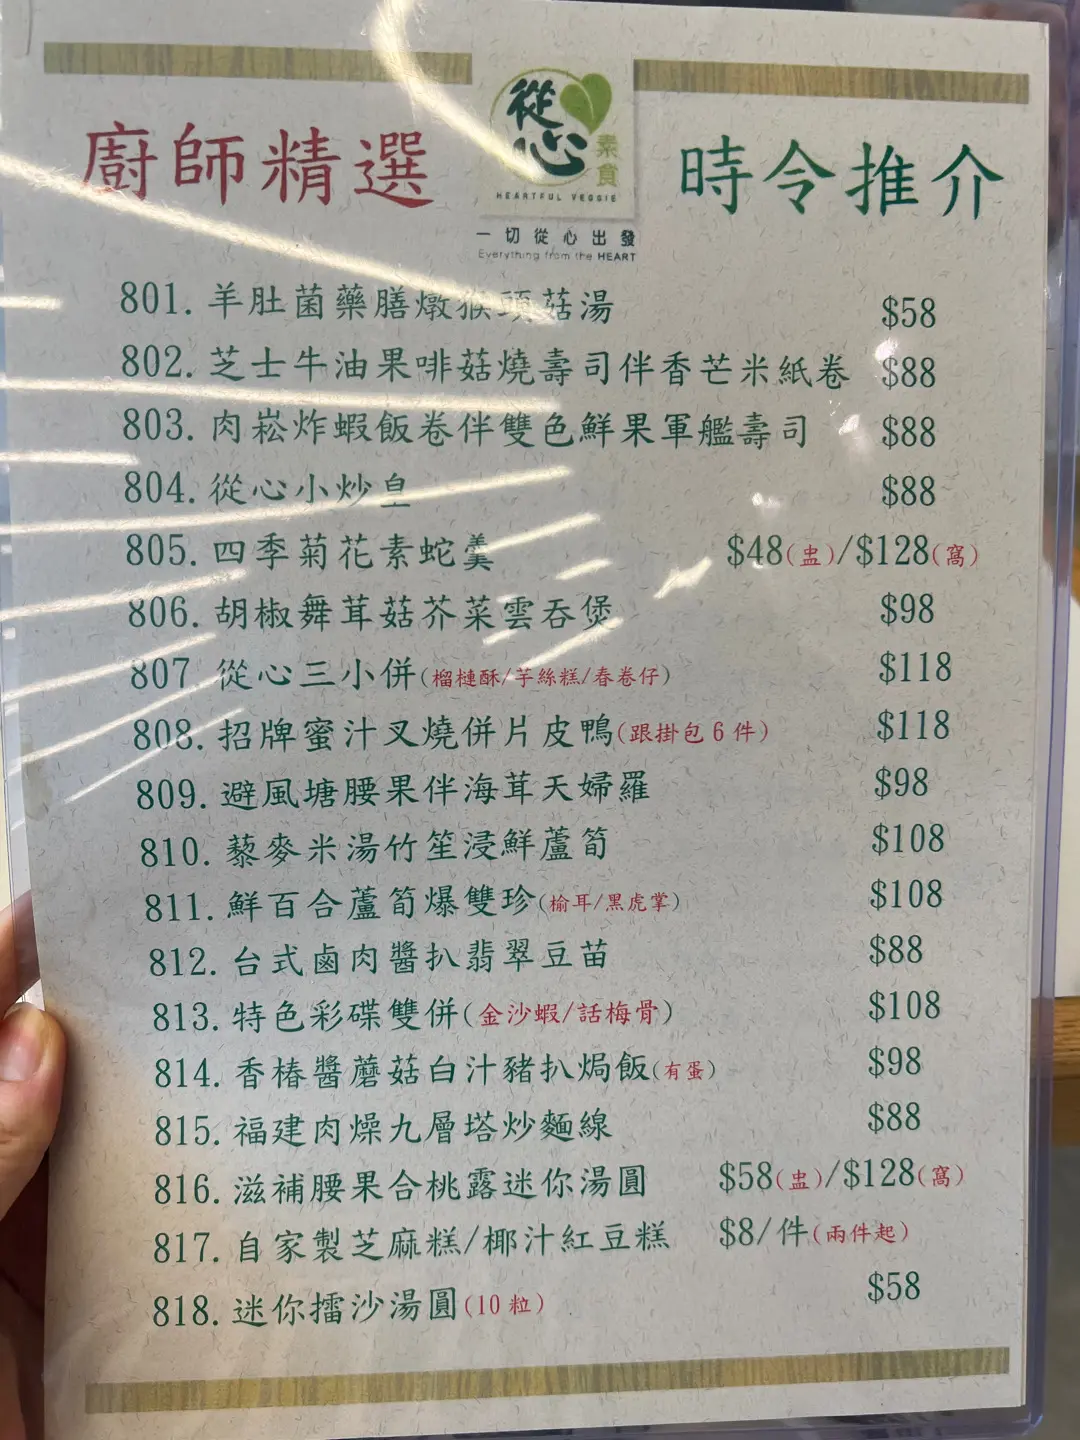 廚師精選
從心
素食
HEARTFUL VEGGIE
一切從心出發
Everything from the HEART
時令推介
801. 羊肚菌藥膳燉猴頭菇湯 $58
802. 芝士牛油果啡菇燒壽司伴香芒米紙卷 $88
803. 肉崧炸蝦飯卷伴雙色鮮果軍艦壽司 $88
804. 從心小炒皇 $88
805. 四季菊花素蛇羹 $48(盅)/$128(窩)
806. 胡椒舞茸菇芥菜雲吞煲 $98
807. 從心三小併(榴槤酥/芋絲糕/春卷仔) $118
808. 招牌蜜汁叉燒併片皮鴨(跟掛包6件) $118
809. 避風塘腰果伴海茸天婦羅 $98
810. 藜麥米湯竹笙浸鮮蘆筍 $108
811. 鮮百合蘆筍爆雙珍(榆耳/黑虎掌) $108
812. 台式鹵肉醬扒翡翠豆苗 $88
813. 特色彩碟雙併(金沙蝦/話梅骨) $108
814. 香椿醬蘑菇白汁豬扒焗飯(有蛋) $98
815. 福建肉燥九層塔炒麵線 $88
816. 滋補腰果合桃露迷你湯圓 $58(盅)/$128(窩)
817. 自家製芝麻糕/椰汁紅豆糕 $8/件(兩件起)
818. 迷你擂沙湯圓(10粒) $58